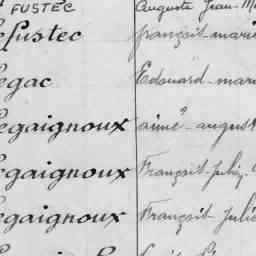 FUSTEC Auguste Jean-M
efustec françois-marie
egac Edouard-mari
egaignoux aimé-august
egaignoux François-july
egaignoux François-Juli